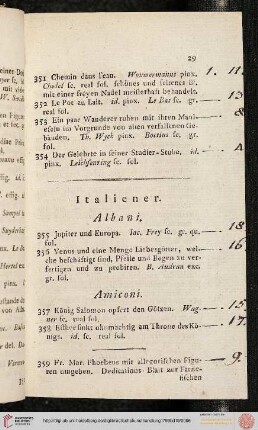 29
351 Chemin dans l'eau. Wouwermanus pinx. 1. 11.
fc. real fol. schönes und seltenes Bl.
mit einer freyen Nadel meisterhaft behandelt.
352 Le Pot au Lait. id. pinx. Le Bas fc. gr. 13
real fol.
353 Ein paar Wanderer ruhen mit ihren Maul- 8
eseln im Vorgrunde von alten verfallenen Ge-
bäuden. Th. Wyck pinx. fc. gr.
fol.
354 Der Gelehrte in seiner Studier-Stube, id.
pinx. fc. fol.
Italiener.
Albani,
355 Jupiter und Europa. Jac. Frey fc. gr. qu. 18
fol.
356 Venus und eine Menge Liebesgötter, wel- 16
che beschäftigt sind, Pfeile und Bogen zu ver-
fertigen und zu probiren. B. Audran exc.
gr. fol.
Amiconi.
357 König Salomon opfert den Götzen. Wag- 15
ner fc. real fol.
358 Esther sinkt ohnmächtig am Throne des Kö- 17.
nigs. id. fc. real fol.
359 Fr. Mar. Phoebeus mit allegorischen Figu- 9.
ren umgeben. Dedications-Blatt zur Farne-
sischen